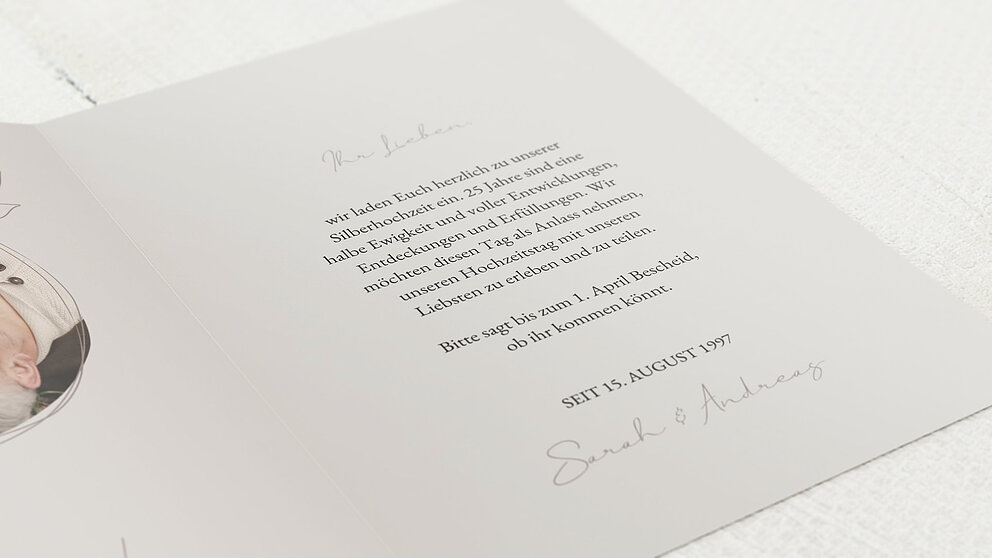 Ihr Lieben,
wir laden Euch herzlich zu unserer
Silberhochzeit ein. 25 Jahre sind eine
halbe Ewigkeit und voller Entwicklungen,
Entdeckungen und Erfüllungen. Wir
möchten diesen Tag als Anlass nehmen,
unseren Hochzeitstag mit unseren
Liebsten zu erleben und zu teilen.
Bitte sagt bis zum 1. April Bescheid,
ob ihr kommen könnt.
SEIT 15. AUGUST 1997
Sarah & Andreas